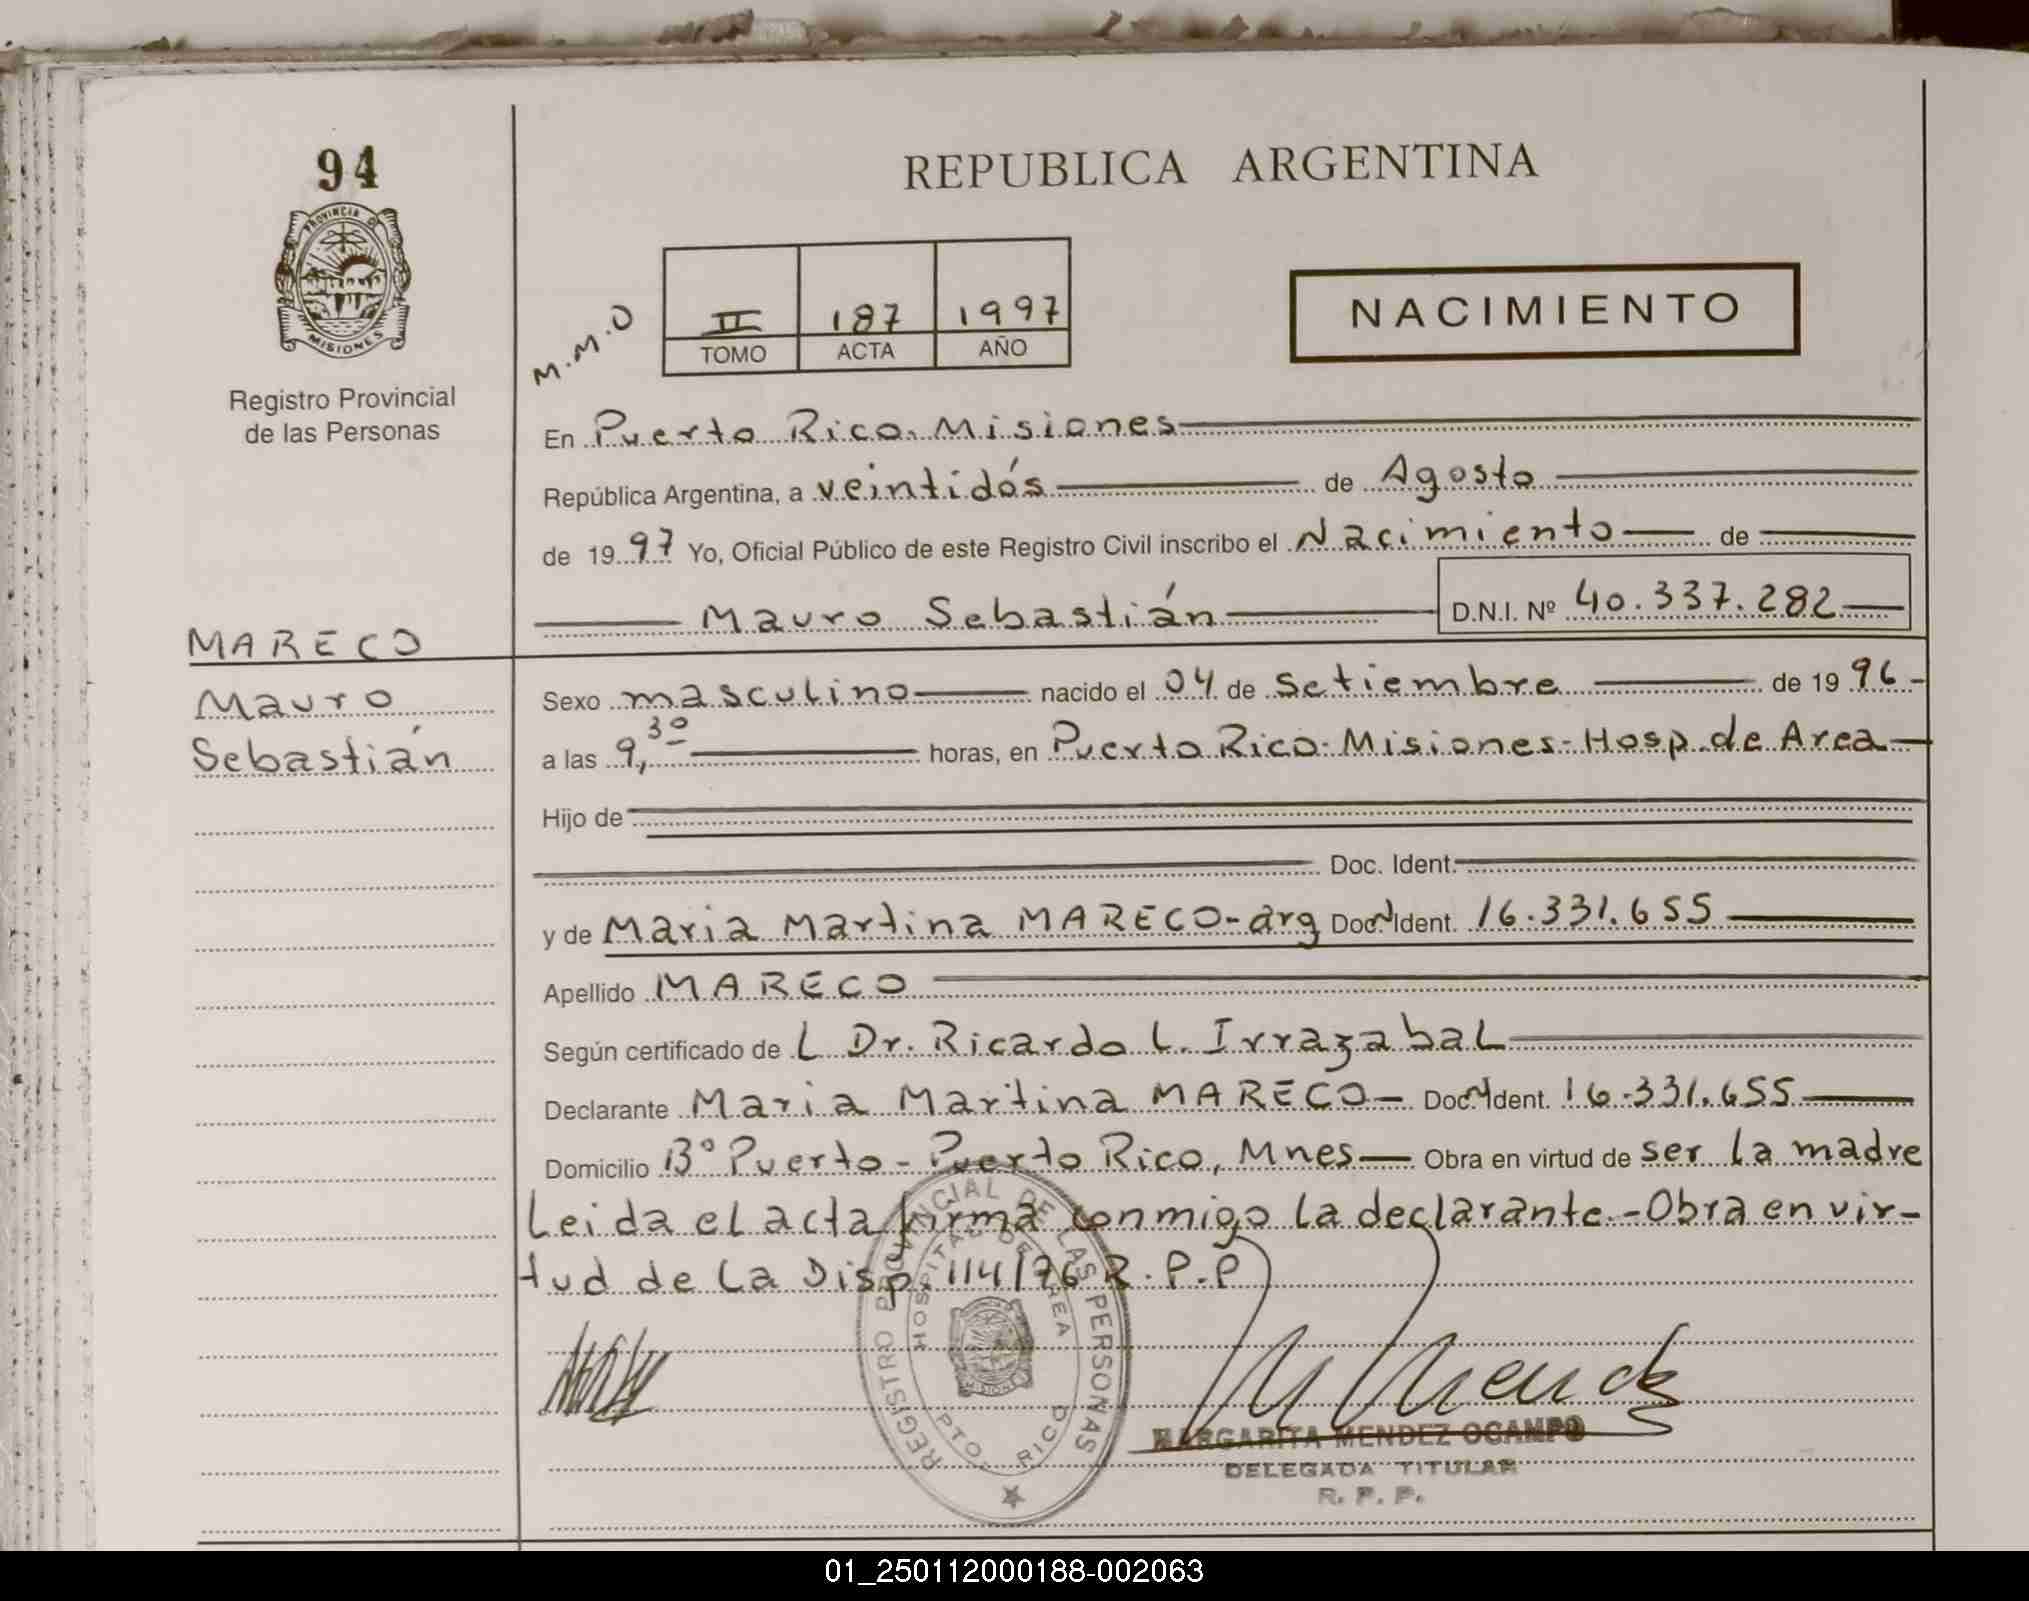 94
PROVINCIA DE
MISIONES
Registro Provincial
de las Personas
REPUBLICA ARGENTINA
M.M.O
II 187 1997
TOMO ACTA AÑO
NACIMIENTO
En Puerto Rico. Misiones
República Argentina, a veintidós de Agosto
de 1997 Yo, Oficial Público de este Registro Civil inscribo el Nacimiento de
Mauro Sebastián D.N.I. Nº 40.337.282
MARECO
Mauro
Sebastián
Sexo masculino nacido el 04 de Setiembre de 1996-
a las 9,30 horas, en Puerto Rico-Misiones-Hosp.de Area
Hijo de
Doc. Ident.
y de Maria Martina MARECO-arg Doc.N Ident. 16.331.655
Apellido MARECO
Según certificado de L Dr. Ricardo L. Irrazabal
Declarante Maria Martina MARECO- Doc.N Ident. 16.331.655
Domicilio Bº Puerto-Puerto Rico, Mnes- Obra en virtud de ser la madre
Leida el acta firma conmigo la declarante.-Obra en vir-
tud de la Disp. 114/76 R.P.P
REGISTRO PROVINCIAL DE LAS PERSONAS
HOSPITAL DE AREA
MISIONES
PTO. RICO
MARGARITA MENDEZ OCAMPO
DELEGADA TITULAR
R. P. P.
01_250112000188-002063